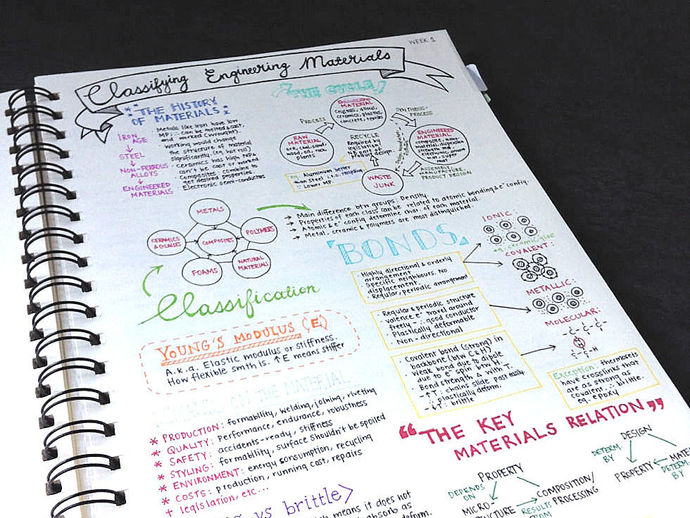 WEEK 1
Classifying Engineering Materials
"THE HISTORY
OF MATERIALS"
IRON
AGE
↓
STEEL
↓
NON-FERROUS
ALLOYS
↓
ENGINEERED
MATERIALS
Metals like iron have low
MP; can be melted, cast,
and worked (wrought)
Working would change
the structure of material
significantly (eg. hot roll)
Ceramics has high MPs,
can't be cast or worked
Composites, combine to
get desired properties
Electronic semi-conductors
THE CYCLE
PROCESS
ENGINEERING
MATERIAL
SYNTHESIS
PROCESS
RAW
MATERIAL
plants
RECYCLE
Required by
ENGINEERED
MATERIAL
WASTE
JUNK
ASSEMBLY,
MANUFACTURE
PRODUCT DESIGN
Aluminium
Lower MP
→ Main difference btwn groups: Density
→ Properties of each class can be related to atomic bonding & e⁻ config.
→ Atomic & e⁻ config determine char of each material
→ Metal, ceramic & polymers are most distinguished
METALS
CERAMICS
& GLASSES
COMPOSITES
POLYMERS
FOAMS
NATURAL
MATERIALS
Classification
BONDS
· Highly directional & orderly
arrangement
· Specific neighbours. No
displacement.
· Regular, periodic arrangement
· Regular & periodic structure
· valence e⁻ travel around
freely ∴ good conductor
· Plastically deformable
· Non-directional
· Covalent bond (strong) in
backbone (btwn C & H)
· Weak bond due to dipole
due to e⁻ spin btwn
· Bond strength Δ with T.
· ↑T: could slide past easily
∴ deform
· ↓T: brittle
IONIC:
COVALENT:
METALLIC:
MOLECULAR:
Exception: Thermosets
have crosslinks that
are as strong as
covalent ∴ brittle.
eg. epoxy
YOUNG'S MODULUS (E)
A.k.a. Elastic modulus or stiffness
How flexible smth is. ↑ E means stiffer
THE MATERIAL
* PRODUCTION: formability, welding, joining, riveting
* QUALITY: Performance, endurance, robustness
* SAFETY: accidents-ready, stiffness
* STYLING: formability, surface shouldn't be spoiled
* ENVIRONMENT: energy consumption, recycling
* COSTS: production, running cost, repairs
+ legislation, etc...
"THE KEY
MATERIALS RELATION"
PROPERTY
DEPENDS
ON
MICRO-
STRUCTURE
RESULTS
FROM
COMPOSITION/
PROCESSING
DESIGN
DETERM.
BY
PROPERTY
DETERM.
BY
vs brittle>
means it does not
absorb as